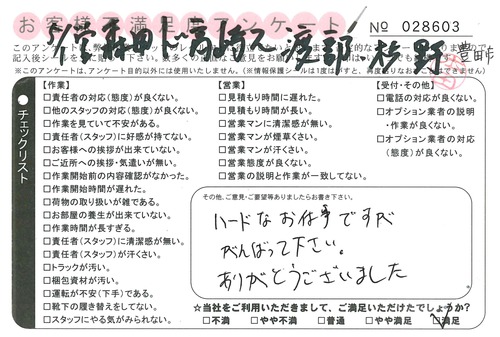 お客様満足度アンケート
No 028603
豊田市
【作業】
□責任者の対応(態度)が良くない。
□他のスタッフの対応(態度)が良くない。
□作業を見ていて不安がある。
□責任者(スタッフ)に好感が持てない。
□お客様への挨拶が出来ていない。
□ご近所への挨拶・気遣いが無い。
□作業開始前の内容確認がなかった。
□作業開始時間が遅れた。
□荷物の取り扱いが雑である。
□お部屋の養生が出来ていない。
□作業時間が長すぎる。
□責任者(スタッフ)に清潔感が無い。
□責任者(スタッフ)が汗くさい。
□トラックが汚い。
□梱包資材が汚い。
□運転が不安(下手)である。
□靴下の履き替えをしてない。
□スタッフにやる気がみられない。
【営業】
□見積もり時間に遅れた。
□見積もり時間が長い。
□営業マンに清潔感が無い。
□営業マンが煙草くさい。
□営業マンが汗くさい。
□営業態度が良くない。
□営業の説明と作業が一致してない。
【受付・その他】
□電話の対応が良くない。
□オプション業者の説明
・作業が良くない。
□オプション業者の対応
(態度)が良くない。
チェックリスト
その他、ご意見・ご要望等ありましたらお書き下さい。
ハードなお仕事ですが
がんばって下さい。
ありがとうございました
☆当社をご利用いただきまして、ご満足いただけたでしょうか?
□不満 □やや不満 □普通 □やや満足 □満足